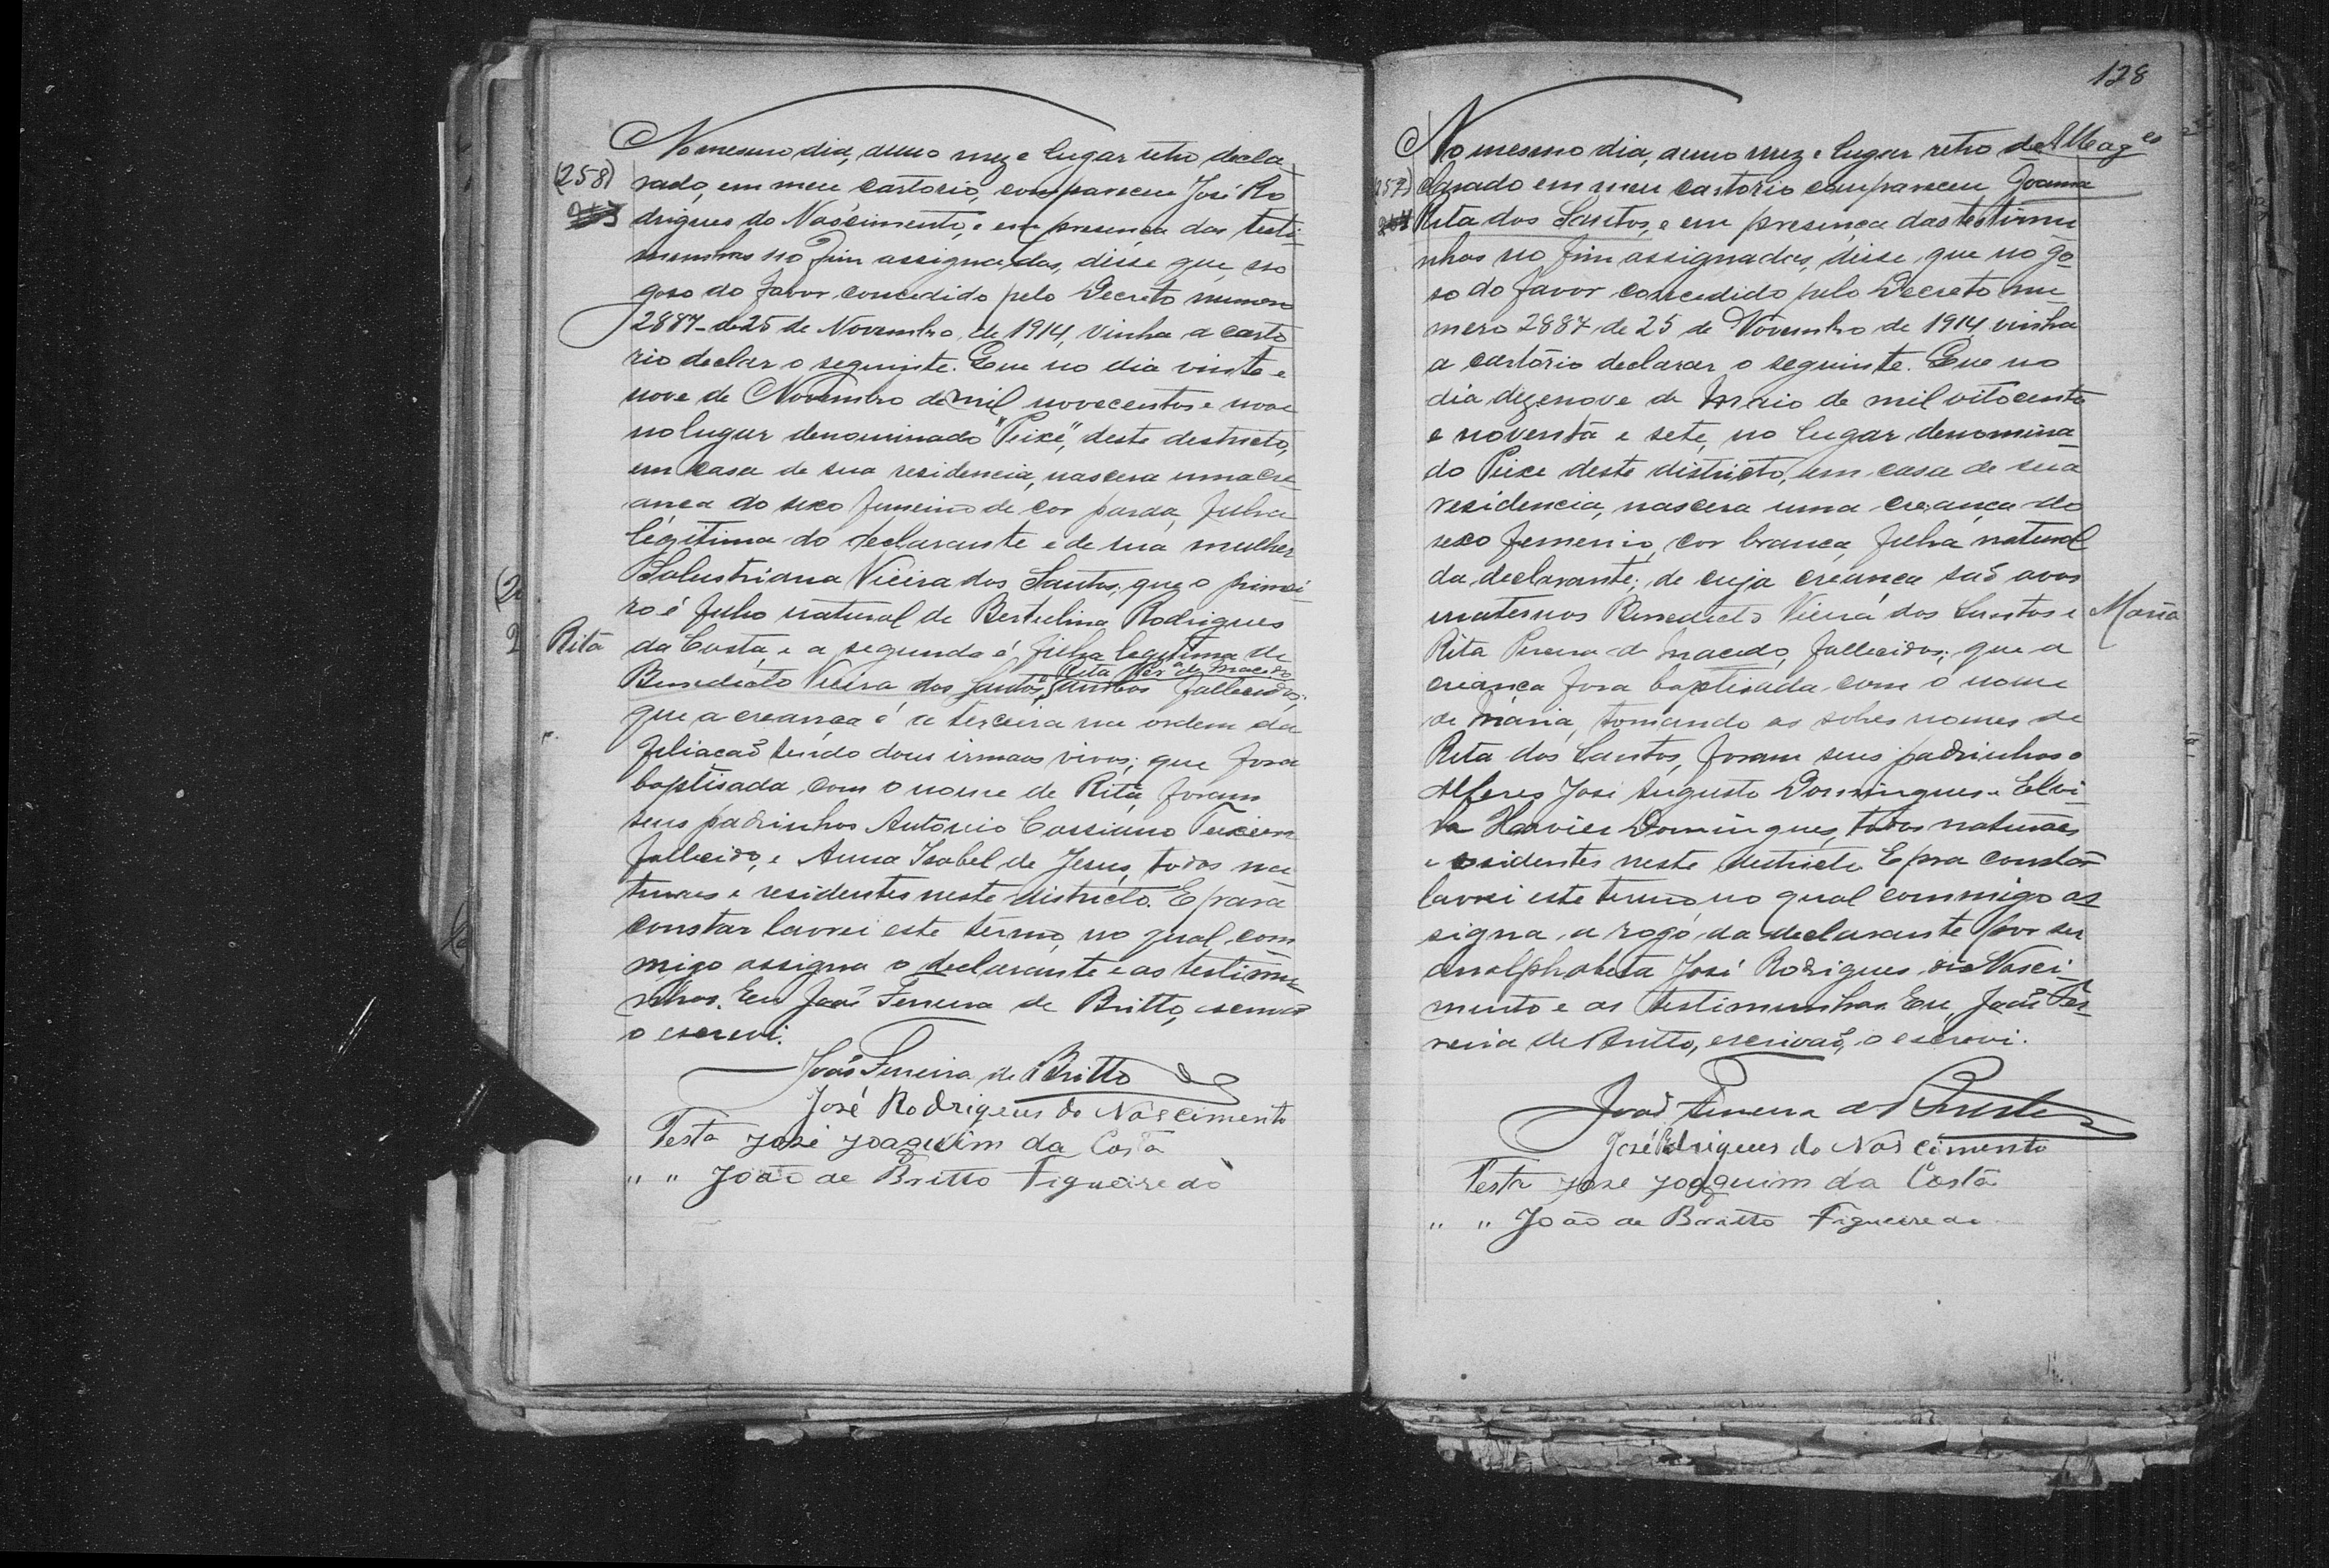 No mesmo dia, anno mez e lugar retro decla
(258) rado, em meu cartorio, compareceu José Ro
drigues do Nascimento, e em presença das testi
munhas no fim assignadas, disse que, no
goso do favor concedido pelo Decreto numero
2887 de 25 de Novembro de 1914, vinha a carto
rio declar o seguinte. Que no dia vinte e
nove de Novembro de mil novecentos e nove
no lugar denominado "Peixe", deste destricto,
em casa de sua residencia, nascera uma cre
ança do sexo femenino de cor parda, filha
legitima do declarante e de sua mulher
Salustriana Vieira dos Santos; que o primei
ro é filho natural de Bertulina Rodrigues
Rita da Costa, e a segunda é filha legitima de
Benedicto Vieira dos Santos, e Rita Per.ª de Macedo ambos fallecidos;
que a creança é a terceira na ordem da
filiacaõ tendo dous irmaos vivos; que fora
baptisada com o nome de Rita, foram
seus padrinhos Antonio Cassiano Teixeira
fallecido, e Anna Isabel de Jesus, todos na
turaes e residentes neste districto. E para
constar lavrei este termo, no qual com
migo assigna o declarante e as testimu
nhas. Eu Joaõ Ferreira de Britto, escrivaõ
o escrevi.
Joaõ Ferreira de Britto
José Rodrigeus do Nascimento
Testa José Joaquim da Costa
" " João de Britto Figueiredo
128
No mesmo dia, anno mez e lugar retro de
clarado em meu cartorio compareceu Joanna
Rita dos Santos, e em presença das testimu
nhas no fim assignadas, disse, que no go
so do favor concedido pelo Decreto nu
mero 2887 de 25 de Novembro de 1914 vinha
a cartório declarar o seguinte. Que no
dia dezenove de Maio de mil oitocento
e noventa e sete, no lugar denomina
do Peixe deste districto, em casa de sua
residencia, nascera uma creança do
sexo femenino, cor branca, filha natural
da declarante; de cuja creança saõ avos
maternos Benedicto Vieira dos Santos e Maria
Rita Pereira de Macedo, fallecidos; que a
creança fora baptisada com o nome
de Maria, tomando os sobres nomes de
Rita dos Santos, foram seus padrinhos o
Alferes José Augusto Domingues e Elvi
ra Xavier Domingues, todos naturaes
e residentes neste destricto. E pra constar
lavrei este termo no qual commigo as
signa a rogo da declarante por ser
analphabeta José Rodrigues do Nasci
mento e as testimunhas. Eu, Joaõ Fer
reira de Britto, escrivaõ, o escrevi.
Joaõ Ferreira de Britto
José Rodrigeus do Nascimento
Testa José Joaquim da Costa
" " João de Britto Figueiredo